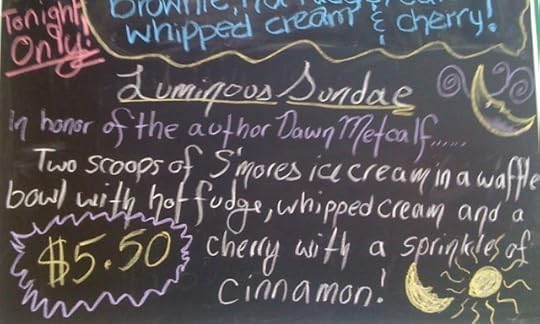 Tonight
Only!
Brownie, hot fudge
whipped cream & cherry!
Luminous Sundae
In honor of the author Dawn Metcalf.....
Two scoops of S'mores ice cream in a waffle
bowl with hot fudge, whipped cream and a
$5.50
cherry with a sprinkles of
cinnamon!